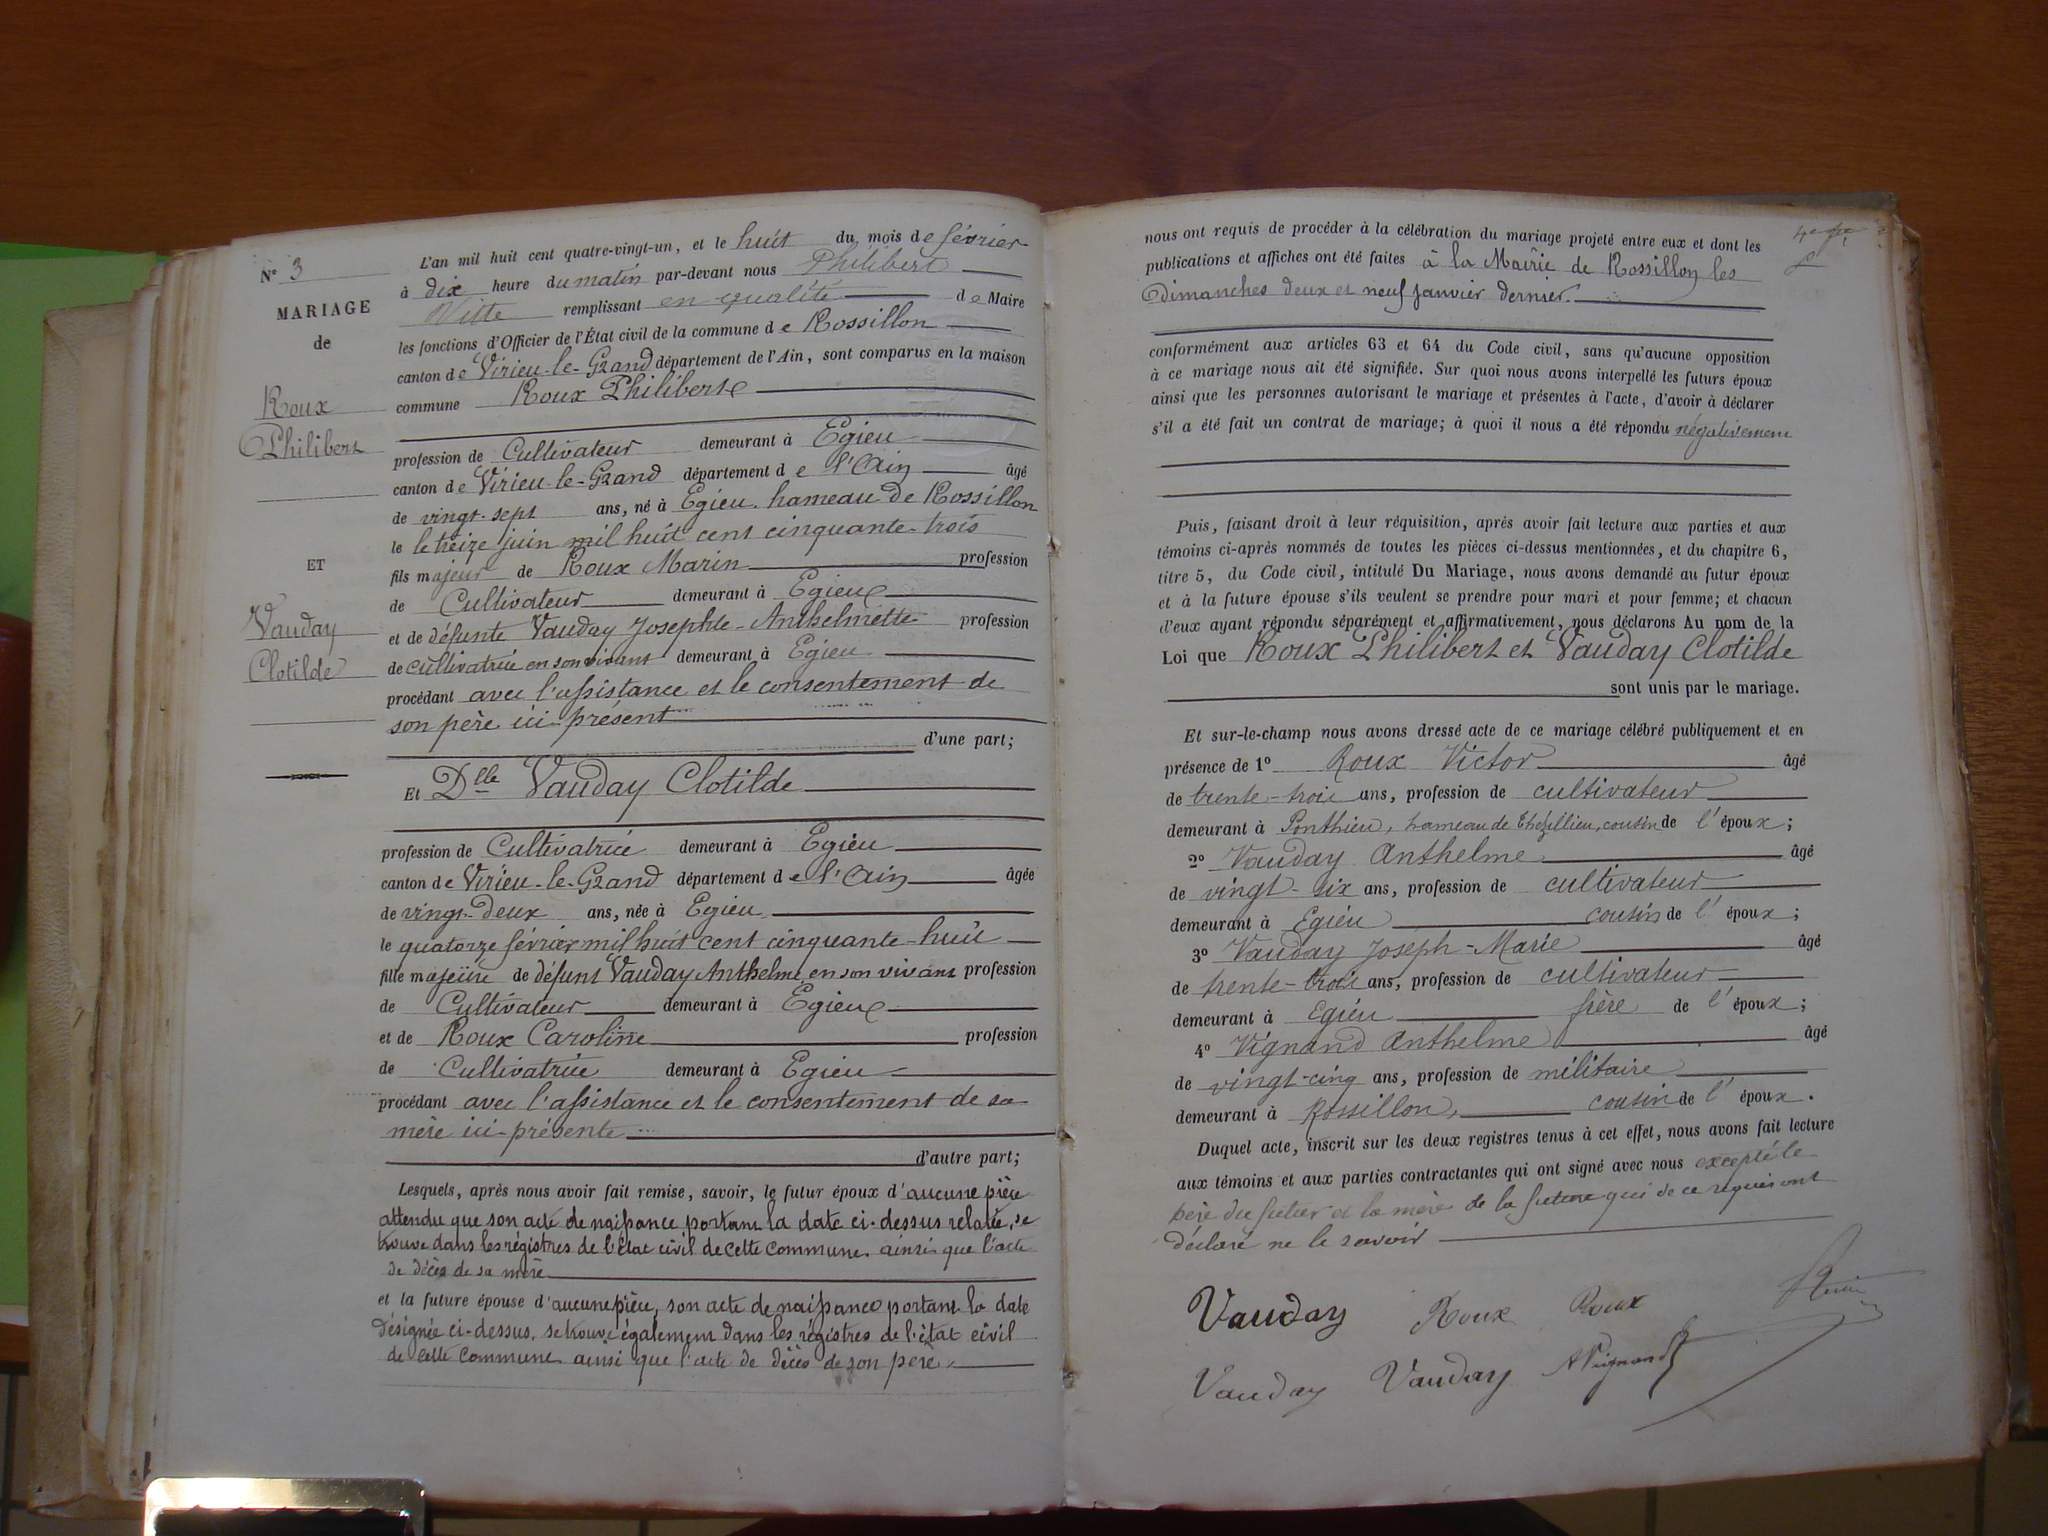 N° 3
MARIAGE
de
Roux
Philibert
ET
Vauday
Clotilde
L'an mil huit cent quatre-vingt-un, et le huit du mois de février
à dix heure du matin par-devant nous Philibert
Vitte remplissant en qualité de Maire
les fonctions d'Officier de l'État civil de la commune de Rossillon
canton de Virieu-le-Grand département de l'Ain, sont comparus en la maison
commune Roux Philibert
profession de Cultivateur demeurant à Egieu
canton de Virieu-le-Grand département de l'Ain âgé
de vingt-sept ans, né à Egieu, hameau de Rossillon
le le treize juin mil huit cent cinquante-trois
fils majeur de Roux Marin profession
de Cultivateur demeurant à Egieu
et de défunte Vauday Josephte-Anthelmette profession
de cultivatrice en son vivant demeurant à Egieu
procédant avec l'assistance et le consentement de
son père ici-présent
d'une part;
Et Dlle Vauday Clotilde
profession de Cultivatrice demeurant à Egieu
canton de Virieu-le-Grand département de l'Ain âgée
de vingt-deux ans, née à Egieu
le quatorze février mil huit cent cinquante-huit
fille majeure de défunt Vauday Anthelme en son vivant profession
de Cultivateur demeurant à Egieu
et de Roux Caroline profession
de Cultivatrice demeurant à Egieu
procédant avec l'assistance et le consentement de sa
mère ici-présente
d'autre part;
Lesquels, après nous avoir fait remise, savoir, le futur époux d'aucune pièce
attendu que son acte de naissance portant la date ci-dessus relatée, se
trouve dans les régistres de l'état civil de cette commune ainsi que l'acte
de décès de sa mère
et la future épouse d'aucune pièce, son acte de naissance portant la date
désignée ci-dessus, se trouve également dans les régistres de l'état civil
de cette commune ainsi que l'acte de décès de son père.
nous ont requis de procéder à la célébration du mariage projeté entre eux et dont les
publications et affiches ont été faites à la Mairie de Rossillon les
Dimanches deux et neuf janvier dernier.
conformément aux articles 63 et 64 du Code civil, sans qu'aucune opposition
à ce mariage nous ait été signifiée. Sur quoi nous avons interpellé les futurs époux
ainsi que les personnes autorisant le mariage et présentes à l'acte, d'avoir à déclarer
s'il a été fait un contrat de mariage; à quoi il nous a été répondu négativement
Puis, faisant droit à leur réquisition, après avoir fait lecture aux parties et aux
témoins ci-après nommés de toutes les pièces ci-dessus mentionnées, et du chapitre 6,
titre 5, du Code civil, intitulé Du Mariage, nous avons demandé au futur époux
et à la future épouse s'ils veulent se prendre pour mari et pour femme; et chacun
d'eux ayant répondu séparément et affirmativement, nous déclarons Au nom de la
Loi que Roux Philibert et Vauday Clotilde
sont unis par le mariage.
Et sur-le-champ nous avons dressé acte de ce mariage célébré publiquement et en
présence de 1° Roux Victor âgé
de trente-trois ans, profession de cultivateur
demeurant à Ponthieu, hameau de Thézillieu, cousin de l'époux;
2° Vauday Anthelme âgé
de vingt-six ans, profession de cultivateur
demeurant à Egieu cousin de l'époux;
3° Vauday Joseph-Marie âgé
de trente-trois ans, profession de cultivateur
demeurant à Egieu frère de l'époux;
4° Vignand Anthelme âgé
de vingt-cinq ans, profession de militaire
demeurant à Rossillon, cousin de l'époux.
Duquel acte, inscrit sur les deux registres tenus à cet effet, nous avons fait lecture
aux témoins et aux parties contractantes qui ont signé avec nous excepté le
père du futur et la mère de la future qui de ce requis ont
déclaré ne le savoir
Vauday Roux Roux
Vauday Vauday A Vignand